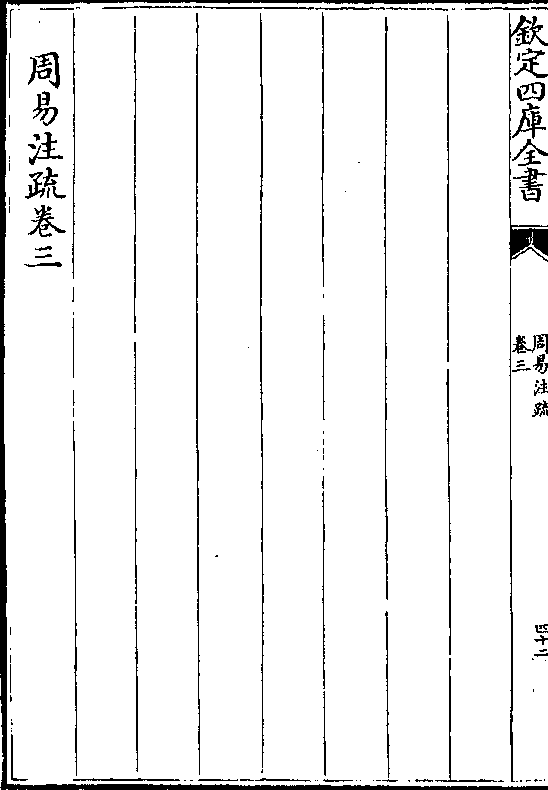 欽定四庫全書
周易注疏
卷三
四十二
周易注疏卷三